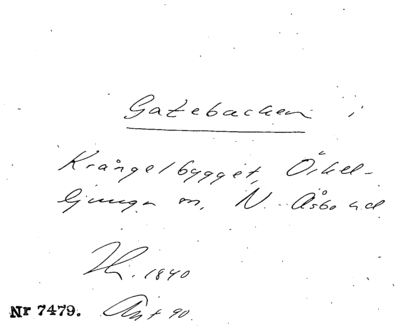 Gatebacken
Krångelbygget, Örkel-
ljunga sn, N. Åsbo hd
1840
Nr 7479. Ant 90.